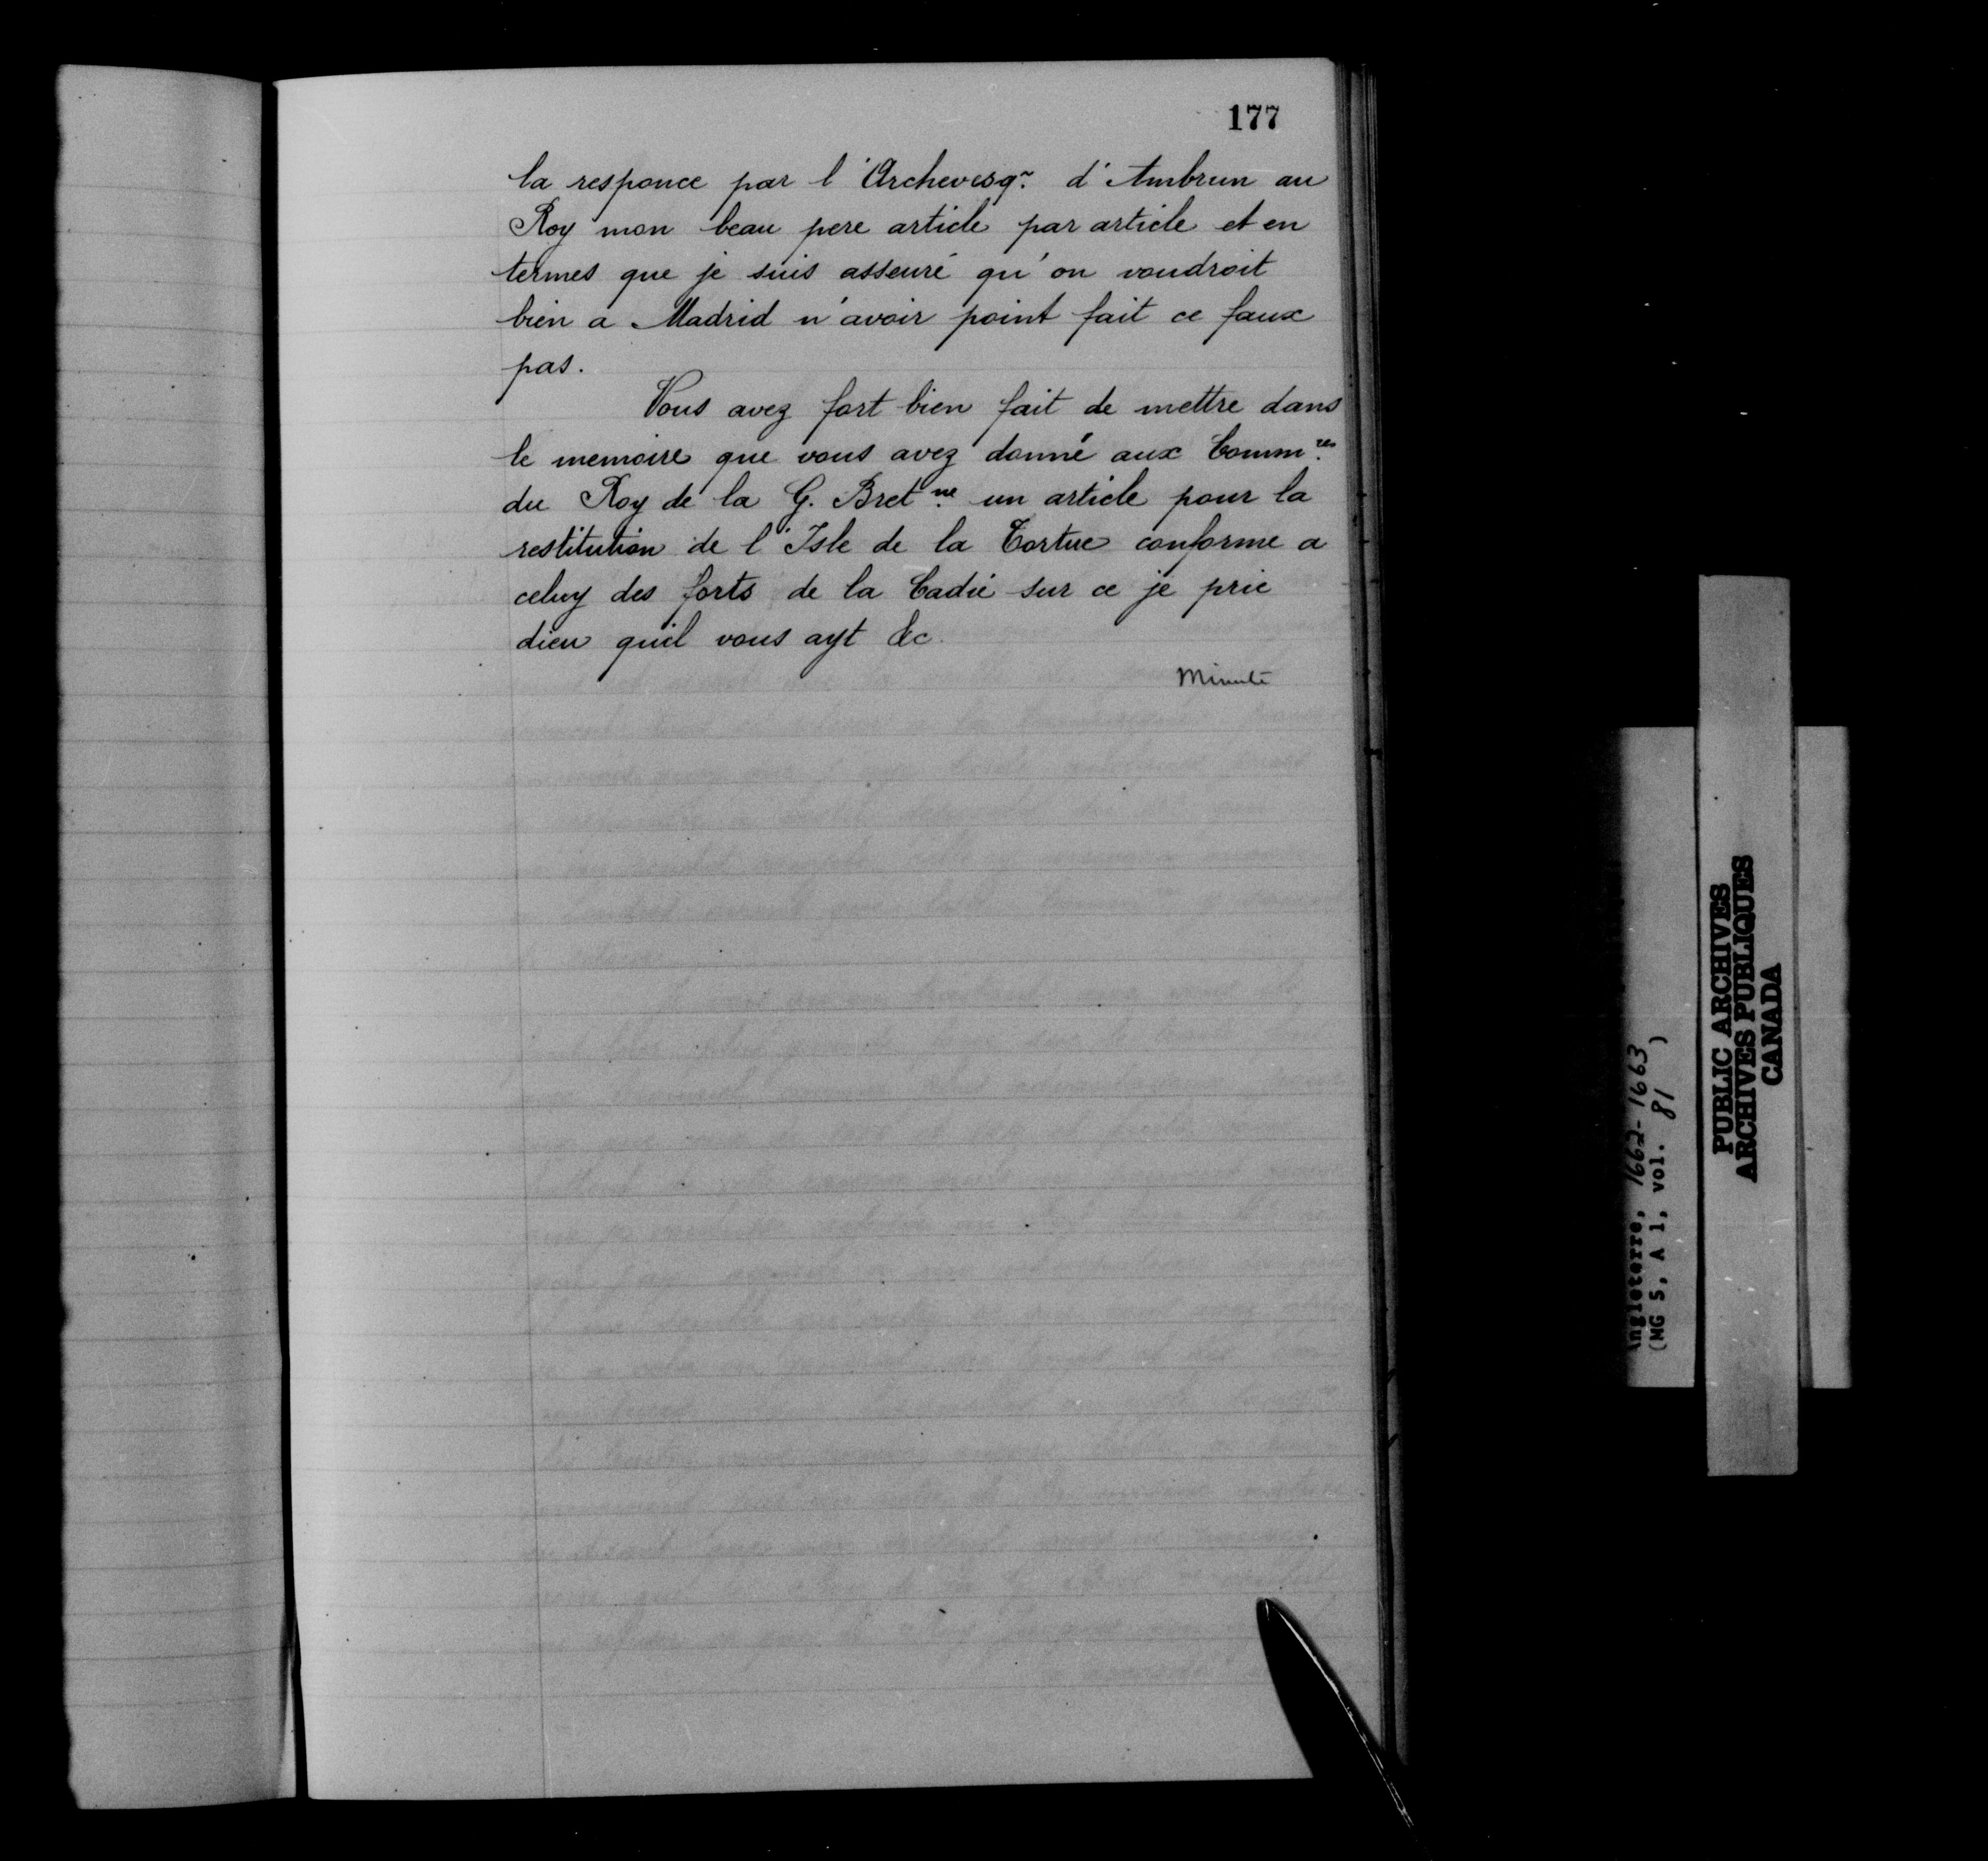 177
la responce par l'Archevesq~. d'Ambrun au
Roy mon beau pere article par article et en
termes que je suis asseuré qu'on voudroit
bien a Madrid n'avoir point fait ce faux
pas.
Vous avez fort bien fait de mettre dans
le memoire que vous avez donné aux Comm.res
du Roy de la G. Bret.ne un article pour la
restitution de l'Isle de la Tortue conforme a
celuy des forts de la Cadie sur ce je prie
dieu quil vous ayt &c.
Minute
ngleterre, 1662-1663
(MG 5, A 1, vol. 81 )
PUBLIC ARCHIVES
ARCHIVES PUBLIQUES
CANADA